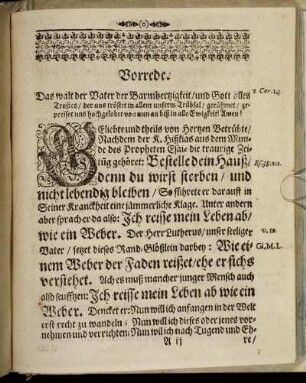 (o)
Vorrede.
Das walt der Vater der Barmhertzigkeit/und Gott alles
Trostes/ der uns tröstet in allem unserm Trübsal/ gerühmet/ ge-
preiset und hochgelobet von nun an biß in alle Ewigkeit! Amen!
2 Cor. 1.4.
GEliebte und theils von Hertzen Betrübte/
Nachdem der K. Hißkias aus dem Mun-
de des Propheten Esaiæ die traurige Zei-
tüg gehöret: Bestelle dein Hauß/
denn du wirst sterben/ und
Es. 38. v. 1.
nicht lebendig bleiben/ So führete er darauff in
Seiner Kranckheit eine jämmerliche Klage. Unter andern
aber sprach er da also: Ich reisse mein Leben ab/
wie ein Weber. Der Herr Lutherus/ unser seeliger
v. 12
Vater/ setzet dieses Rand-Glößlein darbey: Wie ei-
Gl. M. L.
nem Weber der Faden reißet/ ehe er sichs
verstehet. Ach es muß mancher junger Mensch auch
also seuffzen: Ich reisse mein Leben ab wie ein
Weber. Dencket er: Nun will ich anfangen in der Welt
erst recht zu wandeln: Nun will ich dieses oder jenes vor-
nehmen und verrichten: Nun will ich nach Tugend und Eh-
A ij
re/